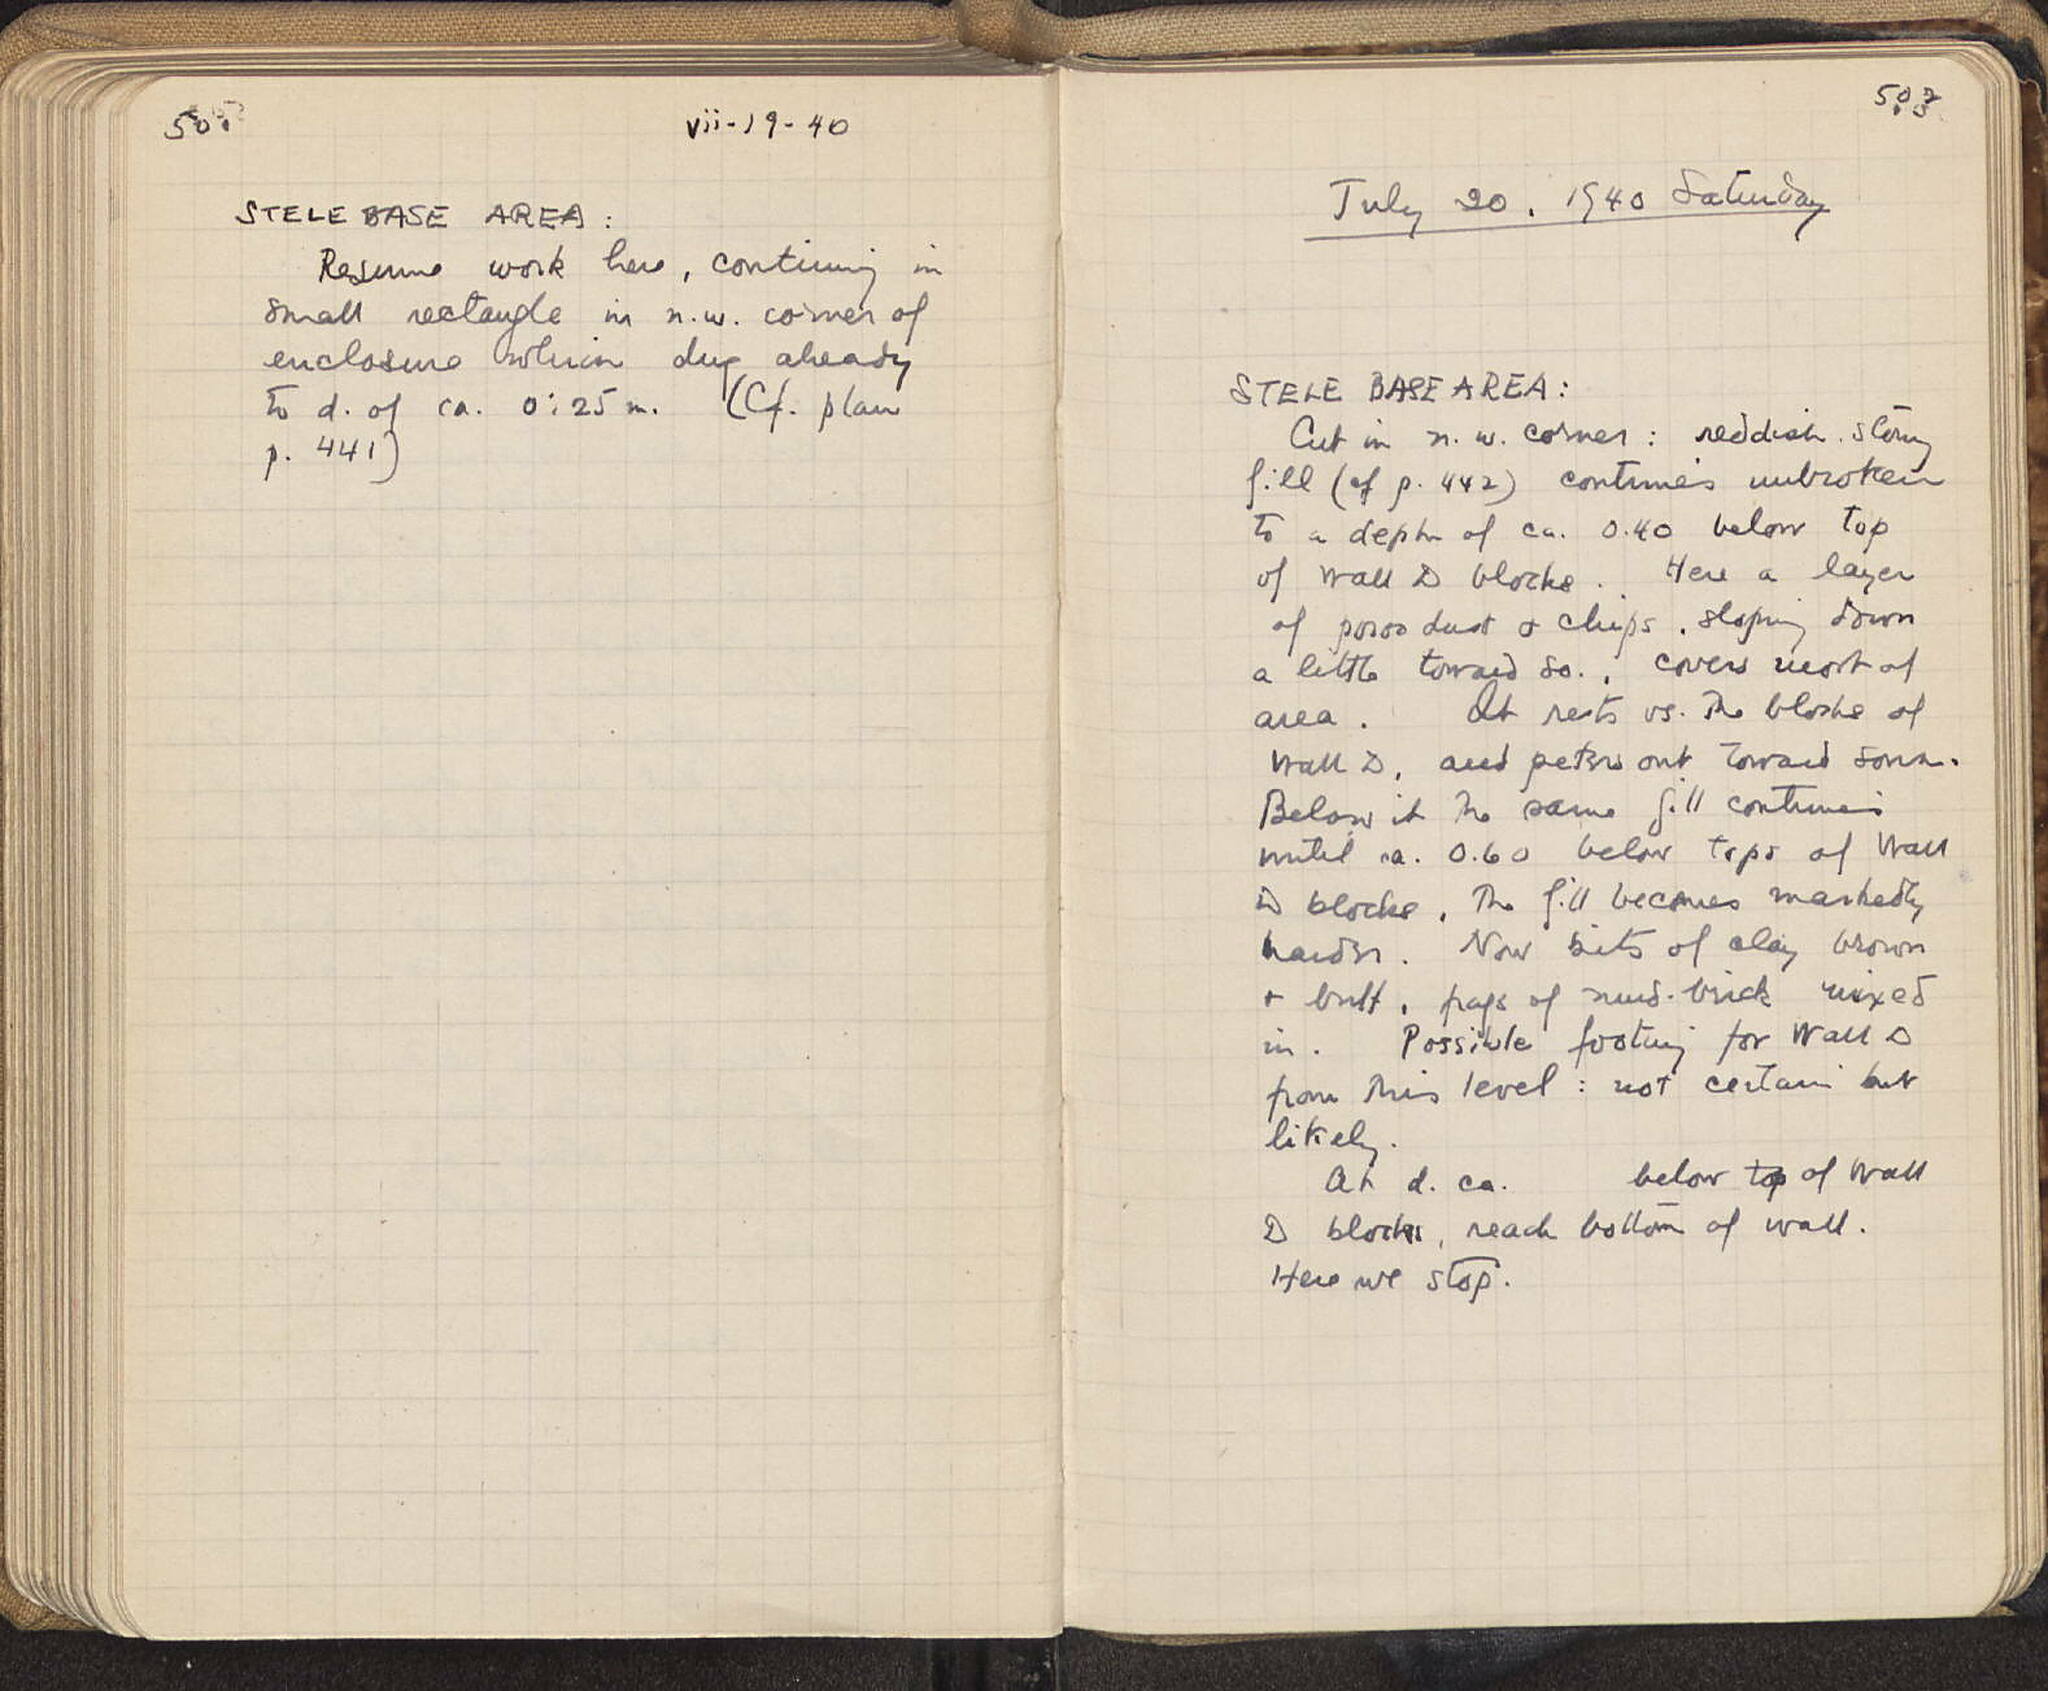 501
vii-19-40
STELE BASE AREA:
Resume work here, continuing in
small rectangle in n.w. corner of
enclosure which dug already
to d. of ca. 0:25 m. (Cf. plan
p. 441)
July 20, 1940 Saturday
STELE BASE AREA:
Cut in n.w. corner: reddish, stony
fill (cf p. 442) continues unbroken
to a depth of ca. 0.40 below top
of Wall D blocks. Here a layer
of poros dust & chips, sloping down
a little toward so., covers most of
area. It rests vs. the blocks of
Wall D, and peters out toward south.
Below it the same fill continues
until ca. 0.60 below tops of Wall
D blocks, the fill becomes markedly
harder. Now bits of clay brown
& buff, frags of mud-brick mixed
in. Possible footing for Wall D
from this level: not certain but
likely.
At d. ca. below top of Wall
D blocks, reach bottom of wall.
Here we stop.